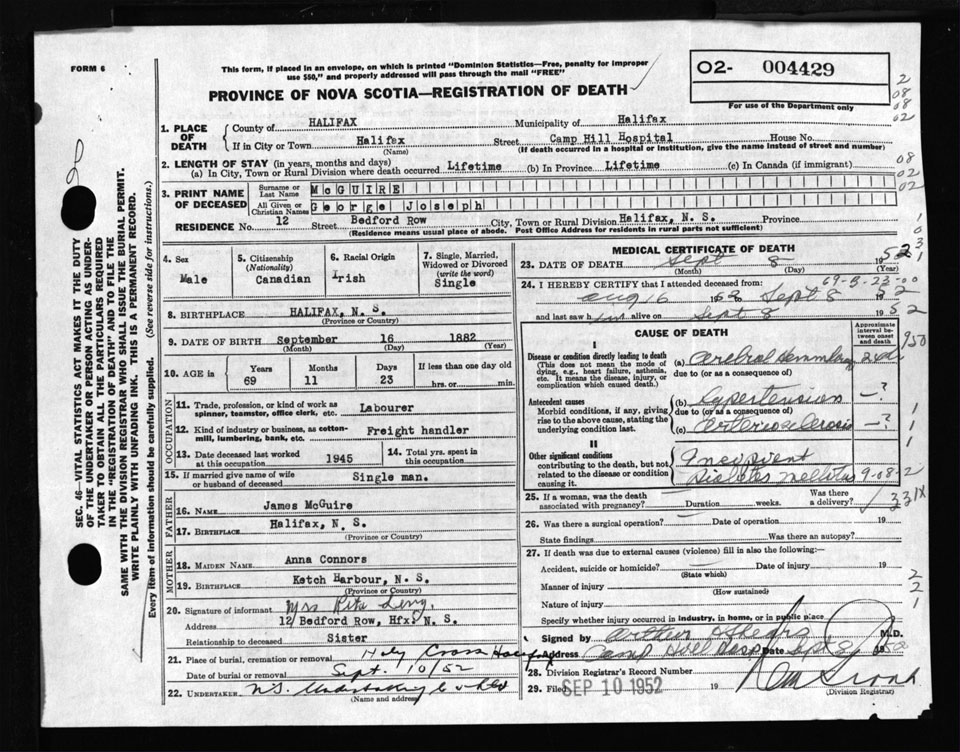 FORM 6
This form, if placed in an envelope, on which is printed "Dominion Statistics—Free, penalty for improper
use $50," and properly addressed will pass through the mail "FREE"
PROVINCE OF NOVA SCOTIA—REGISTRATION OF DEATH
02- 004429
For use of the Department only
2
08
08
02
1. PLACE OF DEATH
County of HALIFAX Municipality of Halifax
If in City or Town Halifax Street Camp Hill Hospital House No.
(Name) (If death occurred in a hospital or institution, give the name instead of street and number)
2. LENGTH OF STAY (in years, months and days)
(a) In City, Town or Rural Division where death occurred Lifetime (b) In Province Lifetime (c) In Canada (if immigrant)
08
02
02
3. PRINT NAME OF DECEASED
Surname or Last Name McGUIRE
All Given or Christian Names George Joseph
RESIDENCE No. 12 Street Bedford Row City, Town or Rural Division Halifax, N. S. Province
(Residence means usual place of abode. Post Office Address for residents in rural parts not sufficient)
SEC. 46—VITAL STATISTICS ACT MAKES IT THE DUTY
OF THE UNDERTAKER OR PERSON ACTING AS UNDER-
TAKER TO OBTAIN ALL THE PARTICULARS REQUIRED
IN THE "REGISTRATION OF DEATH" AND TO FILE THE
SAME WITH THE DIVISION REGISTRAR WHO SHALL ISSUE THE BURIAL PERMIT.
WRITE PLAINLY WITH UNFADING INK. THIS IS A PERMANENT RECORD.
Every item of information should be carefully supplied. (See reverse side for instructions.)
4. Sex
Male
5. Citizenship
(Nationality)
Canadian
6. Racial Origin
Irish
7. Single, Married,
Widowed or Divorced
(write the word)
Single
8. BIRTHPLACE HALIFAX, N. S.
(Province or Country)
9. DATE OF BIRTH September 16 1882
(Month) (Day) (Year)
10. AGE in
Years Months Days If less than one day old
69 11 23 hrs. or min.
OCCUPATION
11. Trade, profession, or kind of work as
spinner, teamster, office clerk, etc. Labourer
12. Kind of industry or business, as cotton-
mill, lumbering, bank, etc. Freight handler
13. Date deceased last worked
at this occupation 1945
14. Total yrs. spent in
this occupation
15. If married give name of wife
or husband of deceased Single man.
FATHER
16. NAME James McGuire
17. BIRTHPLACE Halifax, N. S.
(Province or Country)
MOTHER
18. MAIDEN NAME Anna Connors
19. BIRTHPLACE Ketch Harbour, N. S.
(Province or Country)
20. Signature of informant Mrs Rita
Address 12 Bedford Row, Hfx. N. S.
Relationship to deceased Sister
21. Place of burial, cremation or removal Holy Cross Halifax
Date of burial or removal Sept. 10/52
22. UNDERTAKER N.S. Undertaking Co Ltd
(Name and address)
MEDICAL CERTIFICATE OF DEATH
23. DATE OF DEATH Sept 8 1952
(Month) (Day) (Year)
24. I HEREBY CERTIFY that I attended deceased from: 69-3-23-00
Aug 16 1952 Sept 8 52
and last saw him alive on Sept 8 1952
CAUSE OF DEATH
Approximate
interval be-
tween cause
and death
I
Disease or condition directly leading to death
(This does not mean the mode of
dying, e.g., heart failure, asthenia,
etc. It means the disease, injury, or
complication which caused death.)
(a) Cerebral Hemorrhage
due to (or as a consequence of)
Antecedent causes
Morbid conditions, if any, giving
rise to the above cause, stating the
underlying condition last.
(b) Hypertension — ?
due to (or as a consequence of)
(c) Arteriosclerosis — ?
II
Other significant conditions
contributing to the death, but not
related to the disease or condition
causing it.
Incipient
Diabetes Mellitus 9-08-2
25. If a woman, was the death
associated with pregnancy? Duration weeks. Was there
a delivery?
331X
26. Was there a surgical operation? Date of operation 19
State findings Was there an autopsy?
27. If death was due to external causes (violence) fill in also the following:—
Accident, suicide or homicide? Date of injury 19
(State which)
Manner of injury
(How sustained)
Nature of injury
Specify whether injury occurred in industry, in home, or in public place
Signed by Arthur M.D.
Address Camp Hill Hosp Date Sept 8 1952
28. Division Registrar's Record Number
29. Filed SEP 10 1952 19
(Division Registrar)